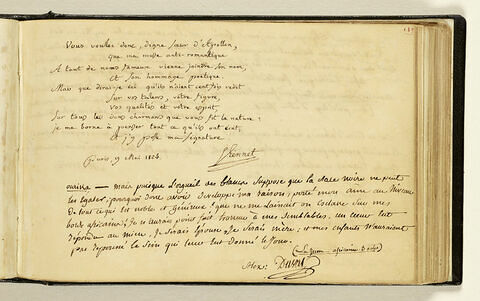 Vous voulez donc, digne sœur d'Apollon,
que ma muse anti-romantique
A tant de noms fameux vienne joindre son nom,
et son hommage poétique.
Mais que dirai-je ici qu'ils n'aient cent fois redit
Sur vos talens, votre figure,
vos qualités et votre esprit,
Sur tous les dons charmans que vous fit la nature :
je me borne à penser tout ce qu'ils ont écrit,
Et j'y joins ma signature
Paris, 9 Mai 1824.
Viennet
ourika — mais puisque l'orgueil des blancs suppose que la race noire ne peut
les égaler, pourquoi donc avoir développé ma raison, porté mon âme au niveau
De tout ce qui est noble et généreux ! que ne me laissait on esclave sur mes
bords africains ! Je n'aurais point fait horreur à mes semblables, un cœur eut
répondu au mien, je serais épouse, je serais mère, et mes enfants n'auraient
pas repoussé le sein qui leur eut donné le jour.
Alex: